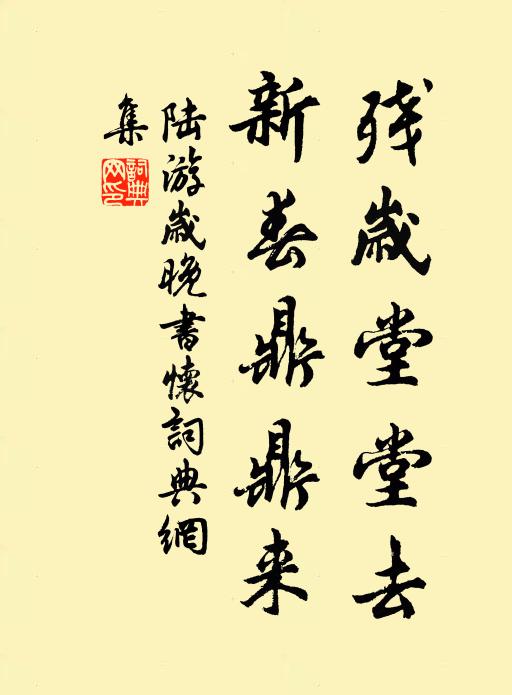 残歲堂堂去
新春鼎鼎来
陆游歲晚書懷詞典網
集
詞典网印